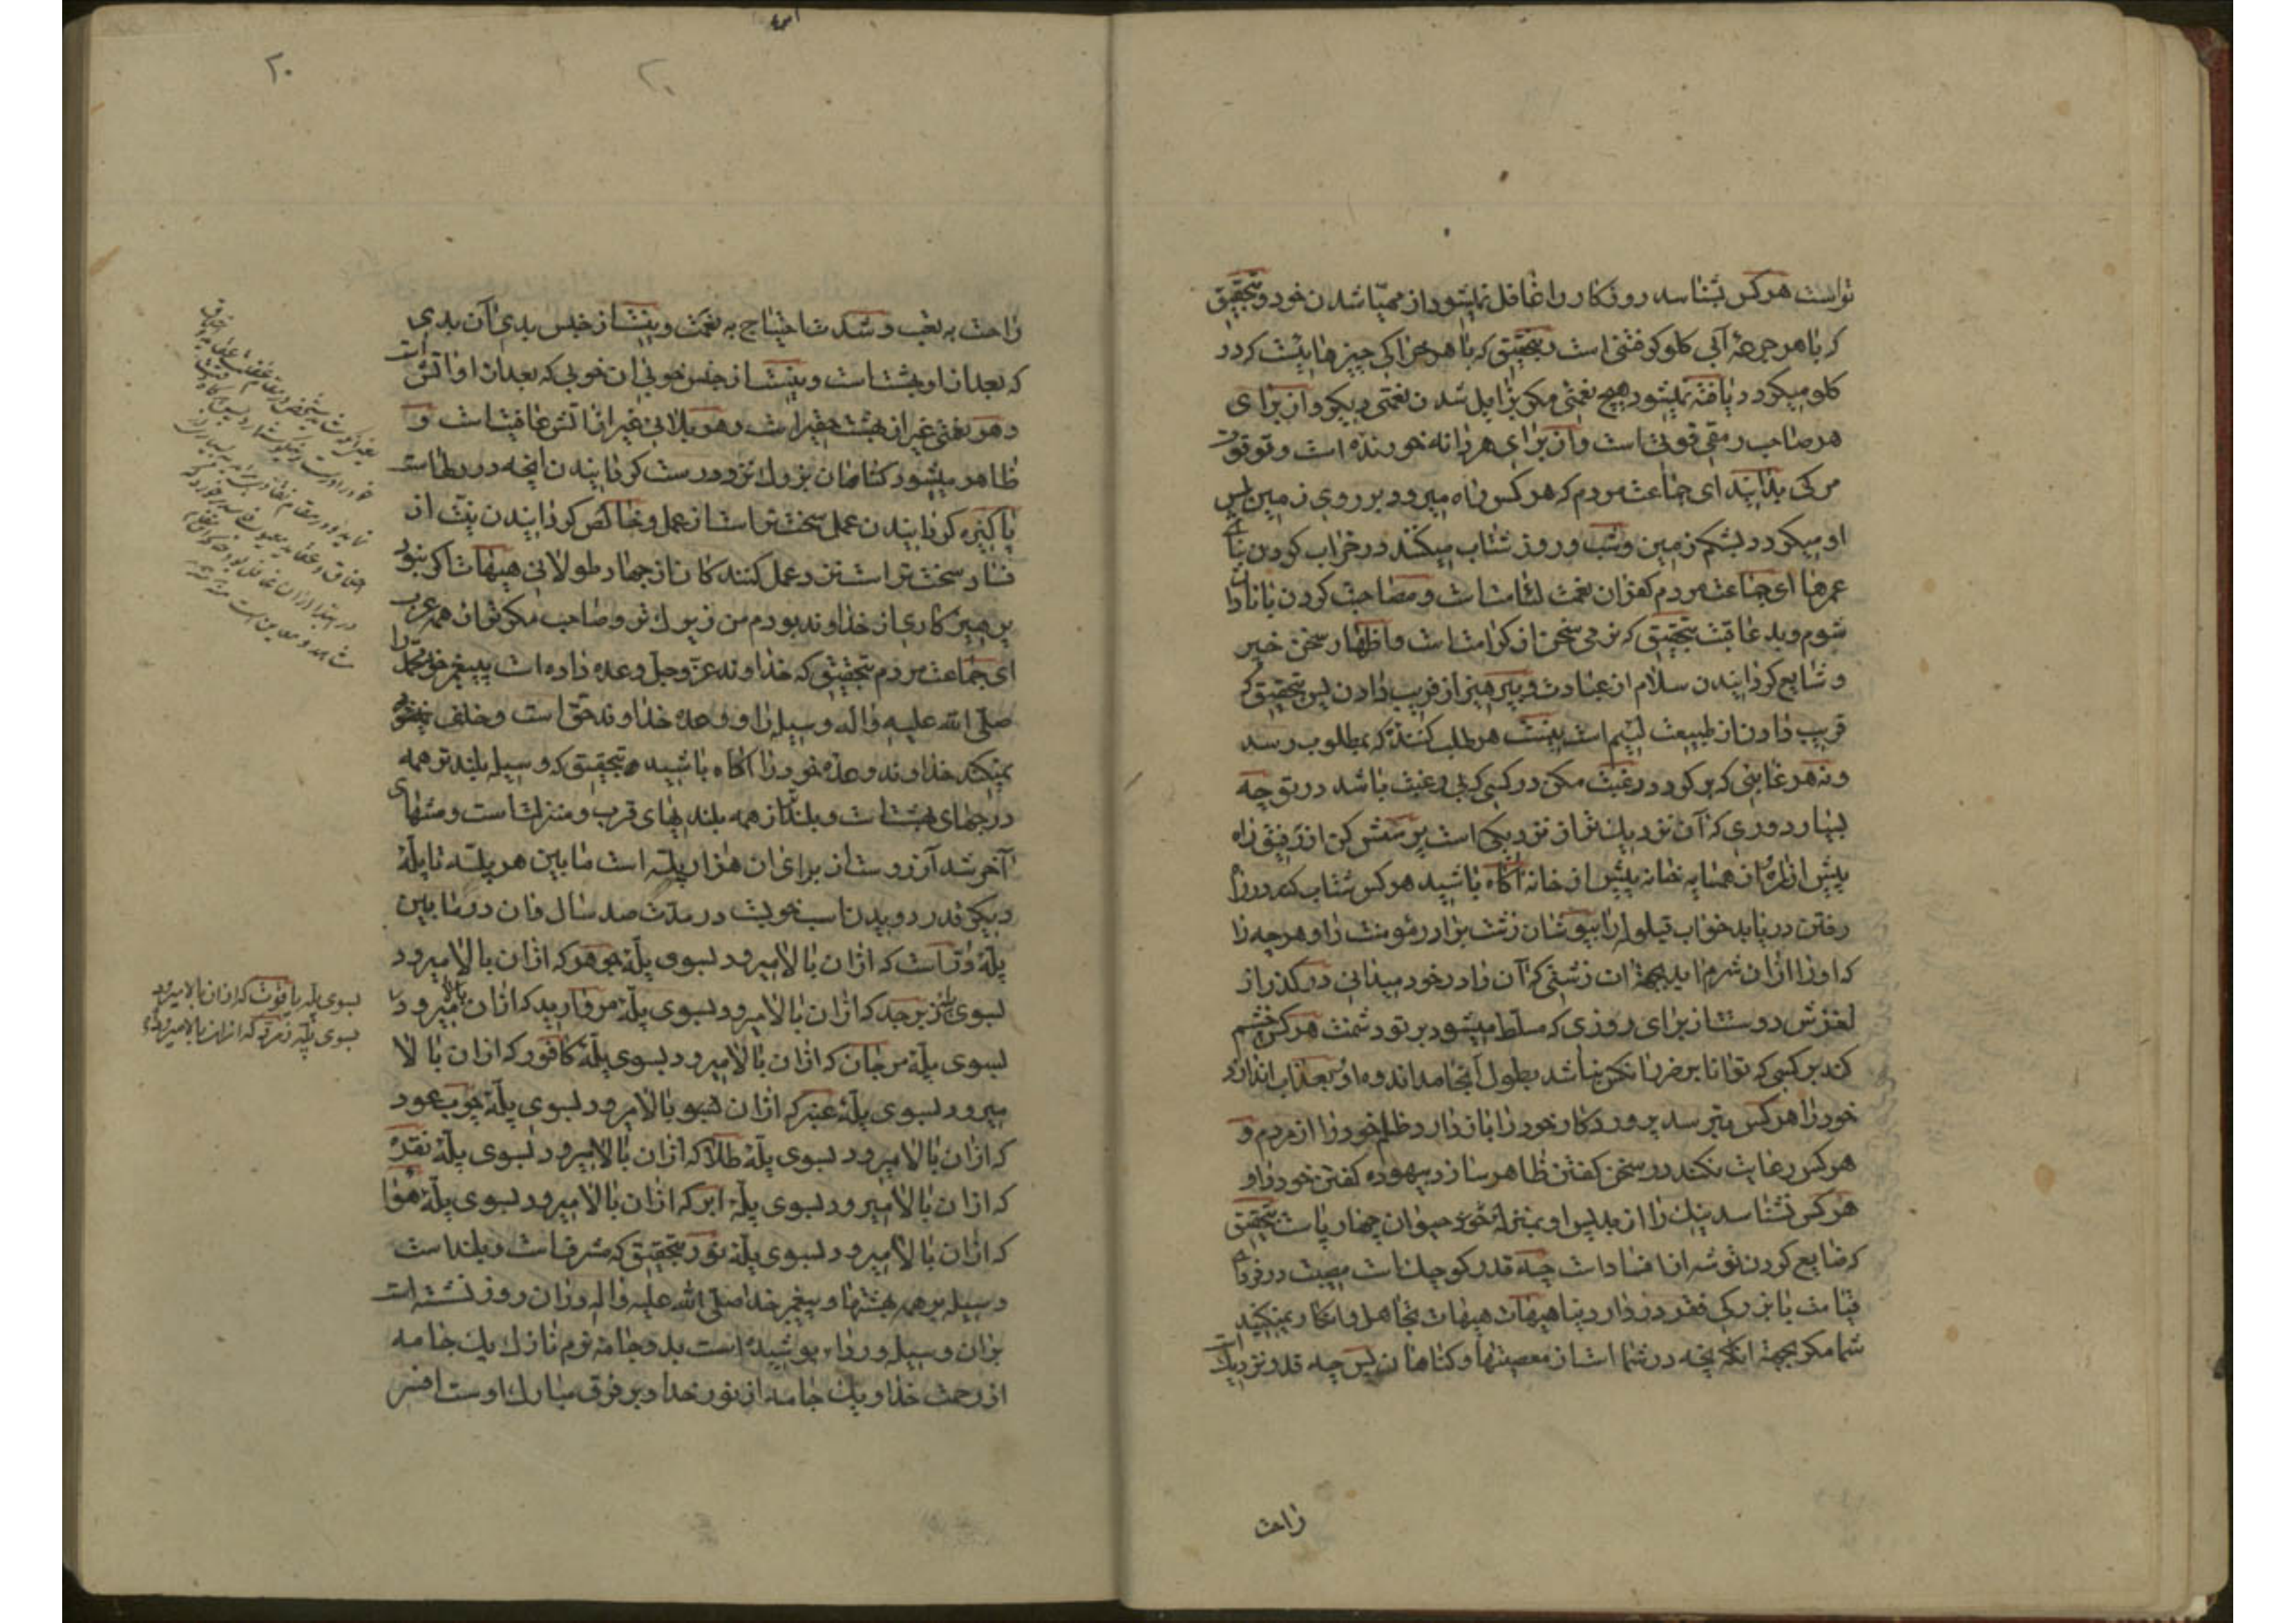 تواست هرکس بشناسد روزکار را غافل نمیشود از مهیّا شدن خود و بتحقیق
که با هر جرعهٔ آبی کلو کرفتنی است و بتحقیق که با هر خوراکی چیزهائیست که در
کلو میکیرد دریافته نمیشود هیچ نعمتی مکر بزایل شدن نعمتی دیکر و از برای
هر صاحب رمقی قوتی است و از برای هر دانه خورنده است و تو قوت
مرکی بدانید ای جماعت مردم که هر کس راه میرود بر روی زمین پس
او میکردد بشکم زمین و شب و روز شتاب میکنند در خراب کردن بنای
عمرها ای جماعت مردم کفران نعمت لئامت است و مصاحبت کردن با نادان
شوم و بد عاقبت بتحقیق که نرمی سخن از کرامت است و اظهار سخن خیر
و شایع کردانیدن سلام از عبادت و بپرهیز از فریب دادن پس بتحقیق که
فریب دادن از طبیعت لئیم است نیست هر طلب کنندهٔ که بمطلوب رسد
و نه هر غایبی که برکردد رغبت مکن در کسی که بی رغبت باشد در تو چه
بسیار دوری که آن نزدیك تر از نزدیکی است پرسش کن از رفیق راه
پیش از راه و از همسایه خانه پیش از خانه آکاه باشید هرکس شتاب کند در راه
رفتن دریابد خواب قیلوله را بپوشان زشت برادر مؤمنت را و هر چه را
که او را از آن شرم آید بجهة آن زشتی که آن را در خود میدانی درکذر از
لغزش دوستت از برای روزی که مسلّط میشود بر تو دشمنت هرکس خشم
کند بر کسی که توانا بر ضرر او نباشد بطول انجامد اندوه او و بعذاب اندازد
خود را هرکس بترسد پروردکار خود را باز دارد ظلم خود را از مردم و
هرکس رعایت نکند در سخن کفتن ظاهر سازد بیهوده کفتن خود را و
هرکس نشناسد نیك را از بد پس او بمنزلهٔ حیوان چهار پاست بتحقیق
که ضایع کردن توشه از افساد است چه قدر کوچك است مصیبت در فردای
قیامت با بزرکی فقر در دار دنیا هیهات هیهات تجاهل و انکار نمیکنید
شما مکر بجهة آنکه آنچه در شما است از معصیتها و کناهان پس چه قدر نزدیك است
راحت
۲۰
راحت به تعب و شدّت احتیاج به نعمت و نیست از جنس بدی آن بدی
که بعد از او بهشت است و نیست از جنس خوبی آن خوبی که بعد از او آتش است
و هر نعمتی غیر از بهشت حقیر است و هر بلائی غیر از آتش عافیت است و
ظاهر میشود کناهان بزرك نزد درست کردانیدن آنچه در دلهاست
پاکیزه کردانیدن عمل سخت تر است از عمل و خالص کردانیدن نیّت از
فساد سخت تر است نزد عمل کنندکان از جهاد طولانی هیهات اکر نبود
پرهیز کاری از خداوند بودم من زیرك تر و صاحب مکرتر از همه عرب
ای جماعت مردم بتحقیق که خداوند عزّ و جلّ وعده داده است پیغمبر خود محمّد را
صلّی الله علیه و آله وسیله را و وعدهٔ خداوند حق است و خلف
نمیکند خداوند وعدهٔ خود را آکاه باشید بتحقیق که وسیله بلندتر همه
درجهای بهشت است و بلندتر از همه بلندیهای قرب و منزلت است و منتهای
آخر شد آرزوست از برای آن هزار پلّه است مابین هر پلّه تا پلّهٔ
دیکر قدر دویدن اسب خوبست در مدّت صد سال و آن در مابین
پلّهٔ درّ است که از آن بالا میرود بسوی پلّهٔ جوهر که از آن بالا میرود
بسوی پلّهٔ زبرجد که از آن بالا میرود بسوی پلّهٔ مروارید که از آن بالا میرود
بسوی پلّهٔ مرجان که از آن بالا میرود بسوی پلّهٔ کافور که از آن بالا
میرود بسوی پلّهٔ عنبر که از آن بالا میرود بسوی پلّهٔ چوب عود
که از آن بالا میرود بسوی پلّهٔ طلا که از آن بالا میرود بسوی پلّهٔ نقره
که از آن بالا میرود بسوی پلّهٔ ابر که از آن بالا میرود بسوی پلّهٔ هوا
که از آن بالا میرود بسوی پلّهٔ نور بتحقیق که مشرفست و بلند است
وسیله بر همه بهشتها و پیغمبر خدا صلّی الله علیه و آله در آن روز نشسته است
بر آن وسیله و رداء پوشیده است بدو جامهٔ نرم نازك یك جامه
از رحمت خدا و یك جامه از نور خدا و بر فرق مبارك اوست افسر
بسوی پلّه یاقوت که از آن بالا میرود
بسوی پلّه زمرّد که از آن بالا میرود